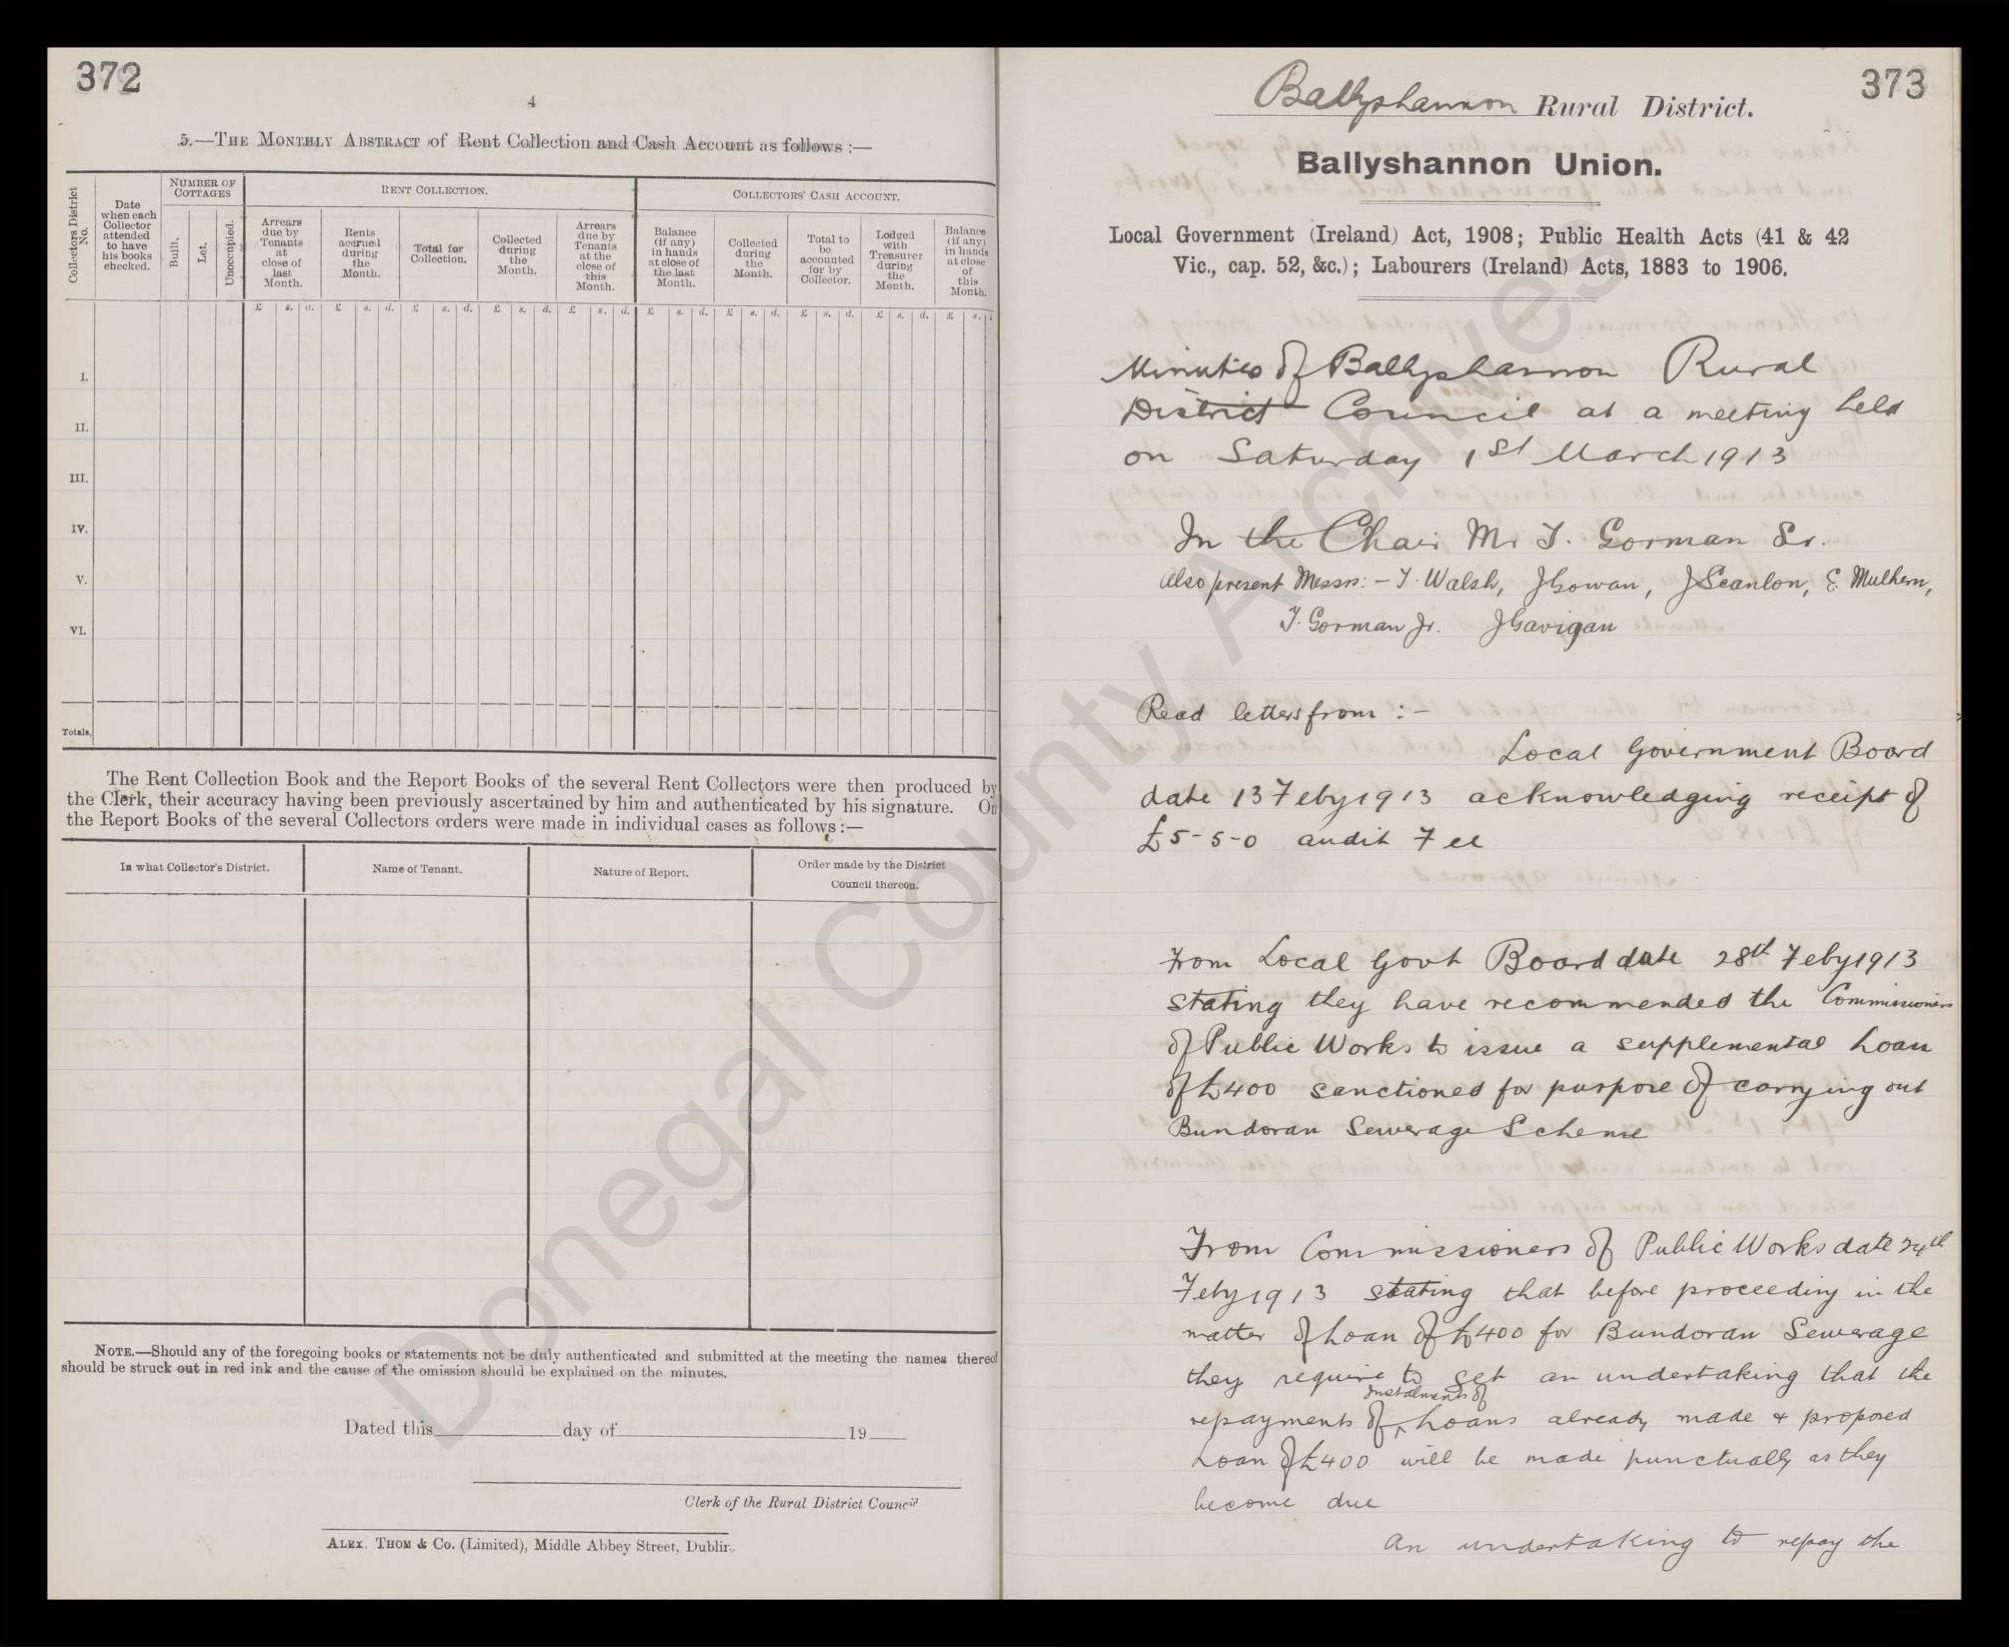 372
4
5.—THE MONTHLY ABSTRACT of Rent Collection and Cash Account as follows :—
Collectors District No.
Date when each Collector attended to have his books checked.
NUMBER OF COTTAGES
Built.
Let.
Unoccupied.
RENT COLLECTION.
Arrears due by Tenants at close of last Month.
Rents accrued during the Month.
Total for Collection.
Collected during the Month.
Arrears due by Tenants at the close of this Month.
COLLECTORS' CASH ACCOUNT.
Balance (if any) in hands at close of the last Month.
Collected during the Month.
Total to be accounted for by Collector.
Lodged with Treasurer during the Month.
Balance (if any) in hands at close of this Month.
£ s. d. £ s. d. £ s. d. £ s. d. £ s. d. £ s. d. £ s. d. £ s. d. £ s. d. £ s.
I.
II.
III.
IV.
V.
VI.
Totals,
The Rent Collection Book and the Report Books of the several Rent Collectors were then produced by
the Clerk, their accuracy having been previously ascertained by him and authenticated by his signature. On
the Report Books of the several Collectors orders were made in individual cases as follows :—
In what Collector's District.
Name of Tenant.
Nature of Report.
Order made by the District
Council thereon.
NOTE.—Should any of the foregoing books or statements not be duly authenticated and submitted at the meeting the names thereof
should be struck out in red ink and the cause of the omission should be explained on the minutes.
Dated this day of 19
Clerk of the Rural District Council
ALEX. THOM & Co. (Limited), Middle Abbey Street, Dublin.
373
Ballyshannon Rural District.
Ballyshannon Union.
Local Government (Ireland) Act, 1908; Public Health Acts (41 & 42
Vic., cap. 52, &c.); Labourers (Ireland) Acts, 1883 to 1906.
Minutes of Ballyshannon Rural
District Council at a meeting held
on Saturday 1st March 1913
In the Chair Mr T. Gorman Sr.
Also present Messrs: - T. Walsh, J Gowan, J Scanlon, E. Mulhern,
T. Gorman Jr. J Gavigan
Read letters from :-
Local Government Board
date 13 Feby 1913 acknowledging receipt of
£5-5-0 audit Fee
From Local Govt Board date 28th Feby 1913
stating they have recommended the Commissioners
of Public Works to issue a supplemental Loan
of £400 sanctioned for purpose of carrying out
Bundoran Sewerage Scheme
From Commissioners of Public Works date 24th
Feby 1913 stating that before proceeding in the
matter of Loan of £400 for Bundoran Sewerage
they require to get an undertaking that the
instalments of
repayments of Loans already made & proposed
Loan of £400 will be made punctually as they
become due
An undertaking to repay the
Donegal County Archives